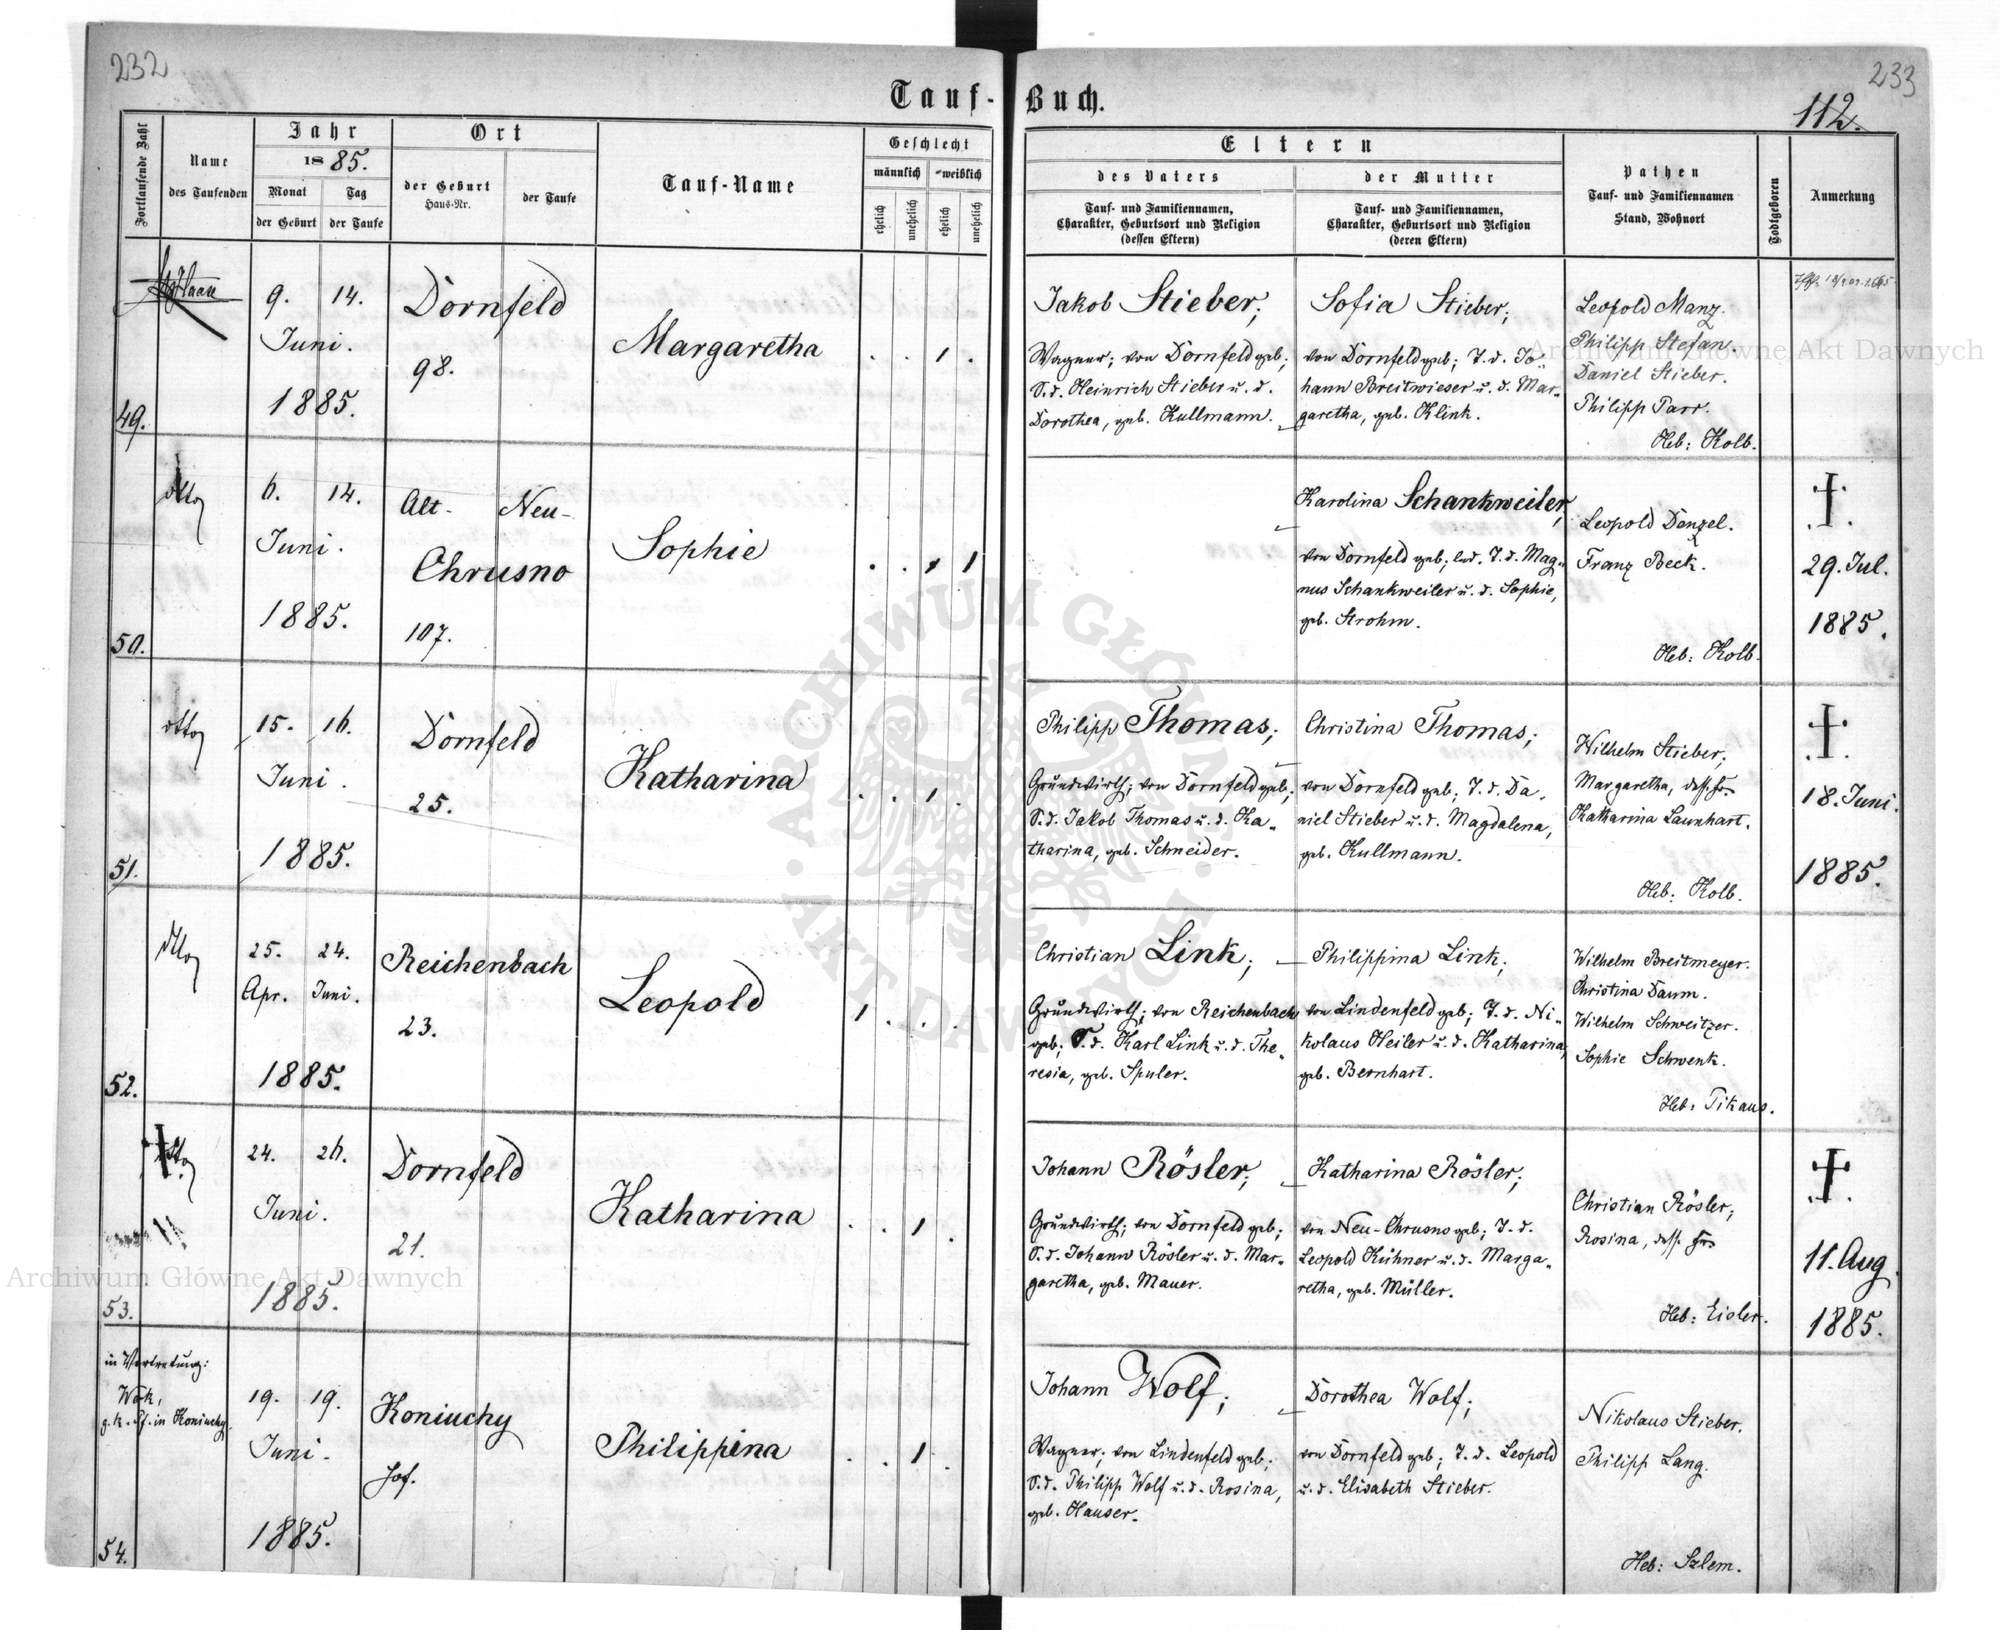 232
Tauf-
Fortlaufende Zahl
Name
des Taufenden
Jahr
1885.
Monat
Tag
der Geburt
der Taufe
Ort
der Geburt
Haus-Nr.
der Taufe
Tauf-Name
Geschlecht
männlich
weiblich
ehelich
unehelich
ehelich
unehelich
49.
9. 14.
Juni.
1885.
Dornfeld
98.
Margaretha
. . 1 .
50.
dtto
6. 14.
Juni.
1885.
Alt- Neu-
Chrusno
107.
Sophie
51.
dtto
15. 16.
Juni.
1885.
Dornfeld
25.
Katharina
. . 1 .
52.
dtto
25. 24.
Apr. Juni.
1885.
Reichenbach
23.
Leopold
1 . . .
53.
dtto
24. 26.
Juni.
1885.
Dornfeld
21.
Katharina
. . 1 .
in Vertretung:
Wok,
g. k. Pf. in Koniuchy.
54.
19. 19.
Juni.
1885.
Koniuchy
Hof.
Philippina
. . 1 .
233
Buch.
112.
Eltern
des Vaters
Tauf- und Familiennamen,
Charakter, Geburtsort und Religion
(dessen Eltern)
der Mutter
Tauf- und Familiennamen,
Charakter, Geburtsort und Religion
(deren Eltern)
Pathen
Tauf- und Familiennamen
Stand, Wohnort
Todtgeboren
Anmerkung
Jakob Stieber;
Wagner; von Dornfeld geb;
S. d. Heinrich Stieber u. d.
Dorothea, geb. Kullmann.
Sofia Stieber;
von Dornfeld geb; T. d. Jo-
hann Breitwieser u. d. Mar-
garetha, geb. Klink.
Leopold Manz.
Philipp Stefan.
Daniel Stieber.
Philipp Parr.
Heb: Kolb.
Karolina Schankweiler,
von Dornfeld geb; led. T. d. Mag-
nus Schankweiler u. d. Sophie,
geb. Strohm.
Leopold Denzel.
Franz Beck.
Heb: Kolb.
29. Jul.
1885.
Philipp Thomas;
Grundwirth; von Dornfeld geb;
S. d. Jakob Thomas u. d. Ka-
tharina, geb. Schneider.
Christina Thomas;
von Dornfeld geb; T. d. Da-
niel Stieber u. d. Magdalena,
geb. Kullmann.
Wilhelm Stieber;
Margaretha, dess. Fr.
Katharina Launhart.
Heb: Kolb.
18. Juni.
1885.
Christian Link;
Grundwirth; von Reichenbach
geb; S. d. Karl Link u. d. The-
resia, geb. Spuler.
Philippina Link;
von Lindenfeld geb; T. d. Ni-
kolaus Heiler u. d. Katharina,
geb. Bernhart.
Wilhelm Breitmeyer.
Christina Daum.
Wilhelm Schweitzer.
Sophie Schwenk.
Heb: Pikaus.
Johann Rösler;
Grundwirth; von Dornfeld geb;
S. d. Johann Rösler u. d. Mar-
garetha, geb. Mauer.
Katharina Rösler;
von Neu-Chrusno geb; T. d.
Leopold Kühner u. d. Marga-
retha, geb. Müller.
Christian Rösler;
Rosina, dess. Fr.
Heb: Eisler.
11. Aug.
1885.
Johann Wolf;
Wagner; von Lindenfeld geb;
S. d. Philipp Wolf u. d. Rosina,
geb. Hauser.
Dorothea Wolf;
von Dornfeld geb; T. d. Leopold
u. d. Elisabeth Stieber.
Nikolaus Stieber.
Philipp Lang.
Heb: Szlem.
Archiwum Główne Akt Dawnych
Archiwum Główne Akt Dawnych
ARCHIWUM GŁÓWNE AKT DAWNYCH